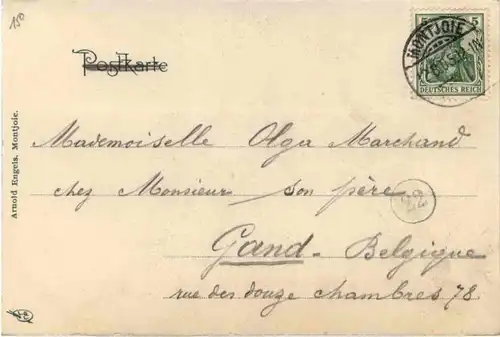 150
Postkarte
5 5
MONTJOIE
DEUTSCHES REICH
Mademoiselle Olga Marchand
chez Monsieur son père
22
Gand - Belgique
rue des douze chambres 78
Arnold Engels, Montjoie.